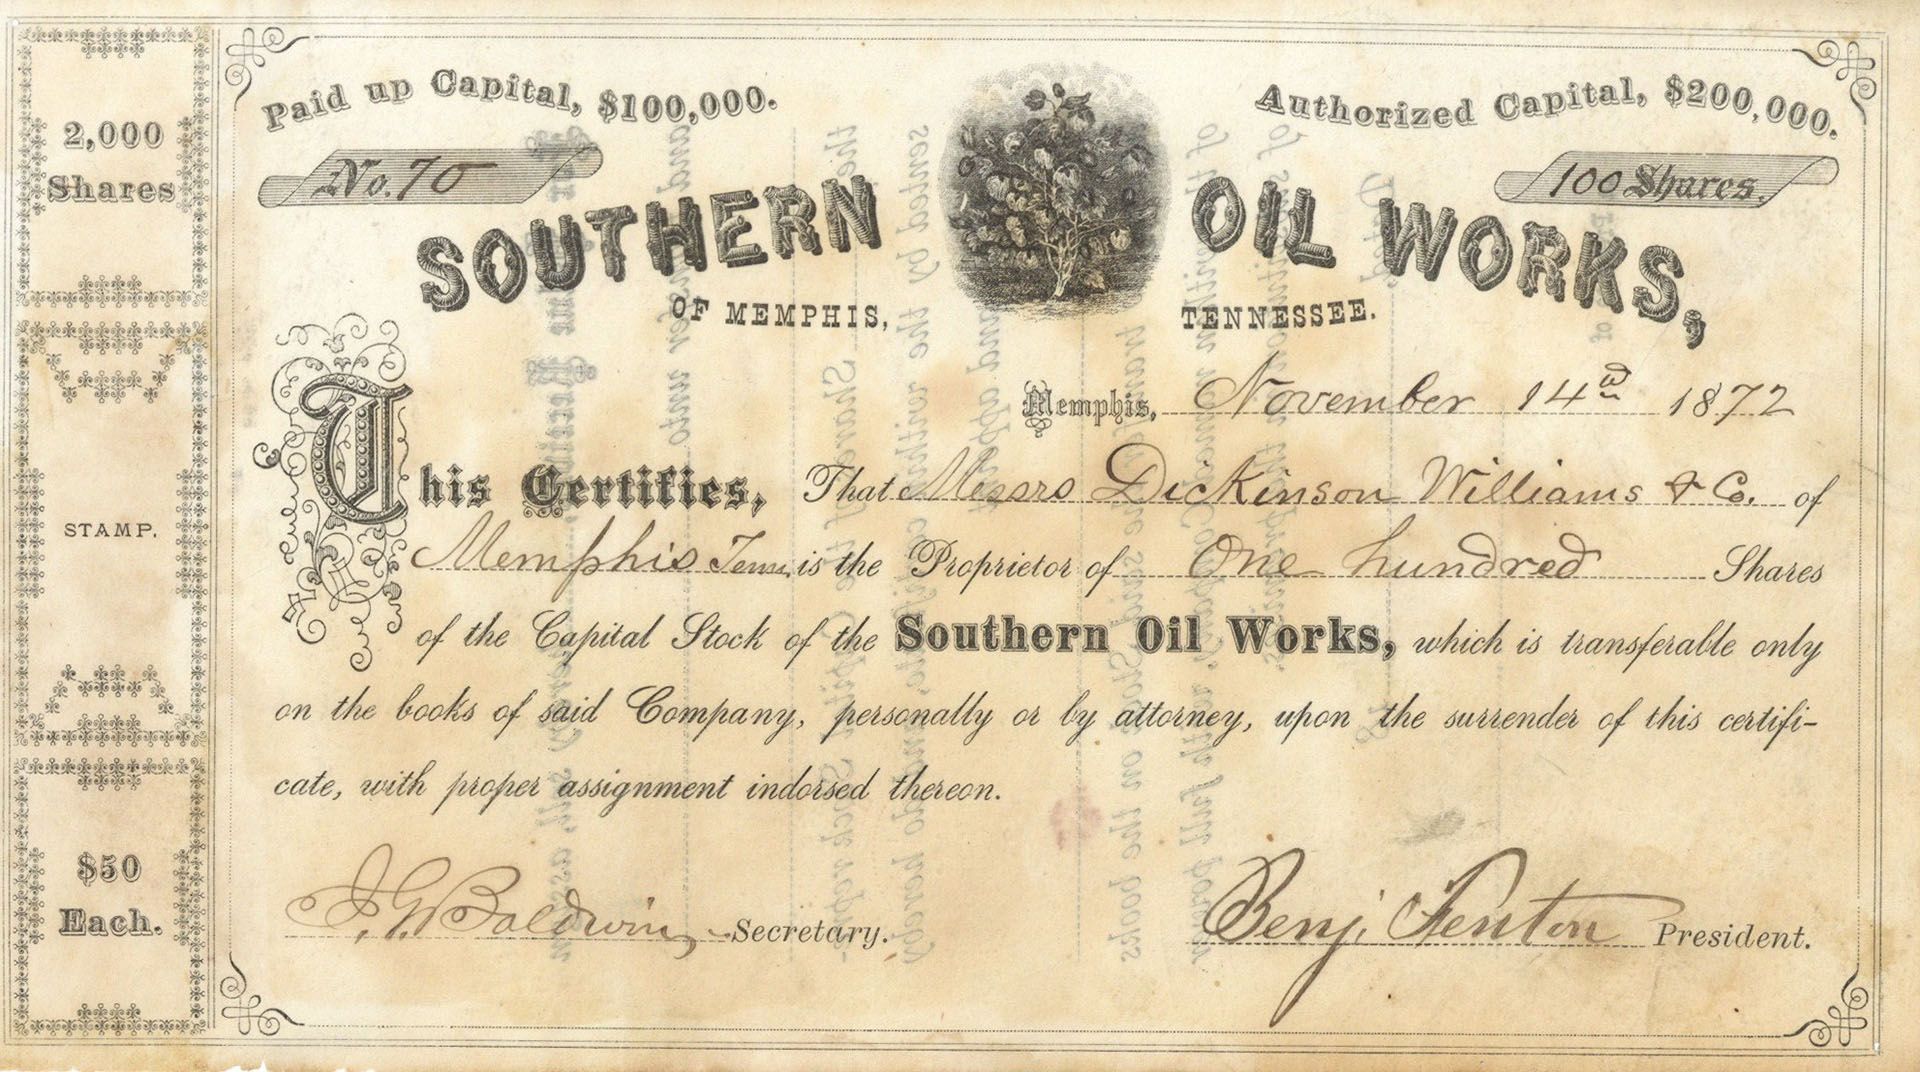 Paid up Capital, $100,000.
Authorized Capital, $200,000.
No. 70
100 Shares.
SOUTHERN OIL WORKS,
OF MEMPHIS, TENNESSEE.
Memphis, November 14th 1872
This Certifies, That Messrs Dickinson Williams & Co. of
Memphis Tenn. is the Proprietor of One hundred Shares
of the Capital Stock of the Southern Oil Works, which is transferable only
on the books of said Company, personally or by attorney, upon the surrender of this certifi-
cate, with proper assignment indorsed thereon.
J. G. Baldwin, Secretary.
Benj. Fenton President.
2,000
Shares
STAMP.
$50
Each.